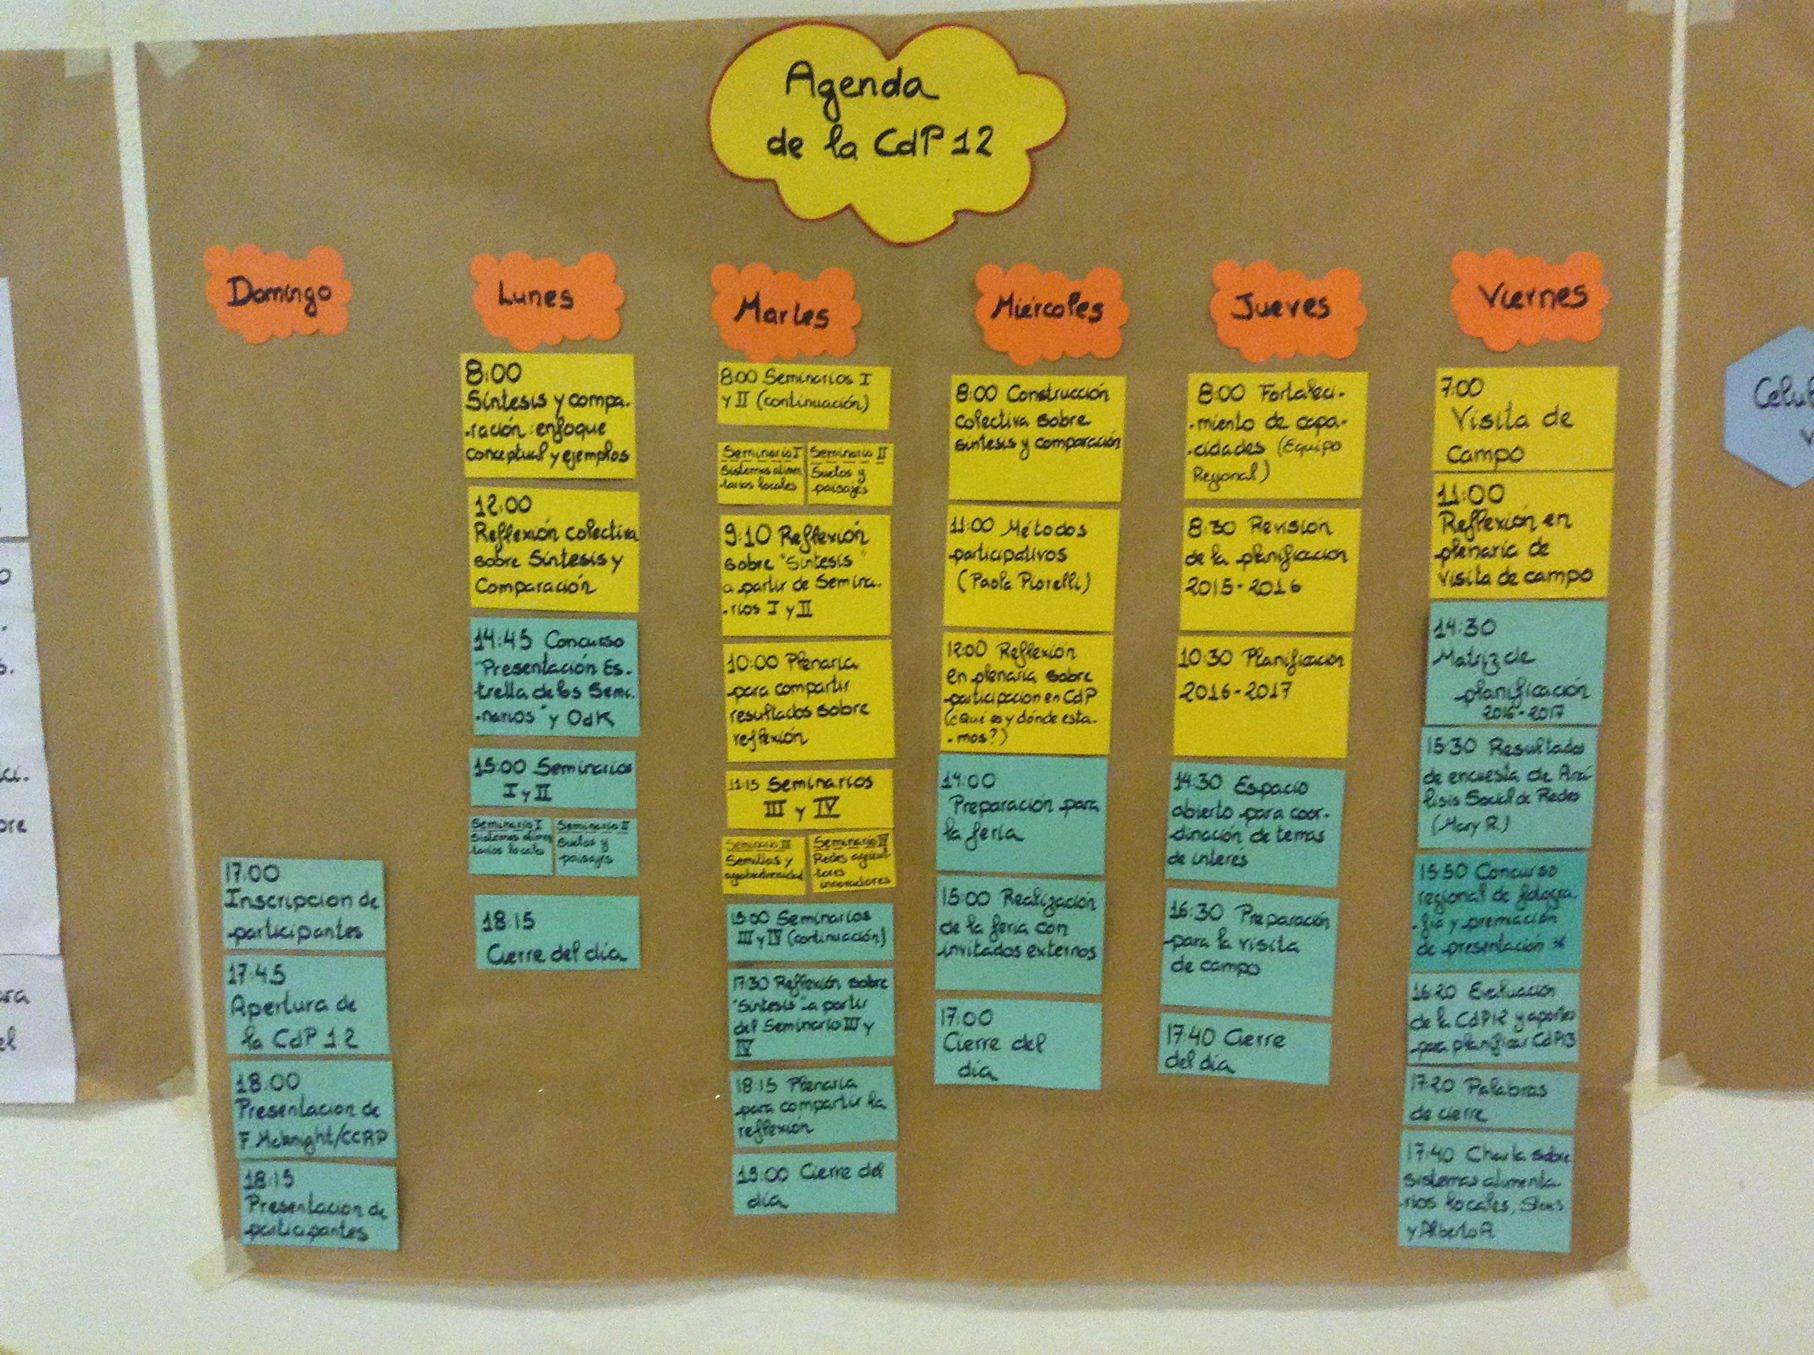 Agenda
de la CdP 12
Domingo
17:00
Inscripcion de
participantes
17:45
Apertura de
la CdP 12
18:00
Presentacion de
F. McKnight/CCRP
18:15
Presentacion de
participantes
Lunes
8:00
Síntesis y compa-
-ración: enfoque
conceptual y ejemplos
12:00
Reflexión colectiva
sobre Síntesis y
Comparación
14:45 Concurso
"Presentación Es-
-trella de los Semi-
-narios" y OdK
15:00 Seminarios
I y II
Seminario I
Sistemas alimen
tarios locales
Seminario II
Suelos y
paisajes
18:15
Cierre del día
Martes
8:00 Seminarios I
y II (continuación)
Seminario I
Sistemas alimen
tarios locales
Seminario II
Suelos y
paisajes
9:10 Reflexión
sobre "Síntesis"
a partir de Semina-
-rios I y II
10:00 Plenaria
para compartir
resultados sobre
reflexión
11:15 Seminarios
III y IV
Seminario III
Semillas y
agrobiodiversidad
Seminario IV
Redes agricul
tores
innovadores
15:00 Seminarios
III y IV (continuación)
17:30 Reflexión sobre
"Síntesis" a partir
del Seminario III y
IV
18:15 Plenaria
para compartir la
reflexión
19:00 Cierre del
día
Miércoles
8:00 Construcción
colectiva sobre
síntesis y comparación
11:00 Métodos
participativos
(Paola Piorelli)
12:00 Reflexión
en plenaria sobre
participación en CdP
(¿Qué es y dónde esta-
-mos?)
14:00
Preparación para
la feria
15:00 Realización
de la feria con
invitados externos
17:00
Cierre del
día
Jueves
8:00 Fortaleci-
-miento de capa-
-cidades (Equipo
Regional)
8:30 Revisión
de la planificación
2015-2016
10:30 Planificación
2016-2017
14:30 Espacio
abierto para coor-
-dinación de temas
de interés
16:30 Preparación
para la visita
de campo
17:40 Cierre
del día
Viernes
7:00
Visita de
campo
11:00
Reflexión en
plenaria de
visita de campo
14:30
Matriz de
planificación
2016-2017
15:30 Resultados
de encuesta de Aná
lisis Social de Redes
(Mary R.)
15:50 Concurso
regional de fotogra-
-fía y premiación
de presentación *
16:20 Evaluación
de la CdP12 y aportes
para planificar CdP13
17:20 Palabras
de cierre
17:40 Charla sobre
sistemas alimenta-
-rios locales,
y Alberto A.